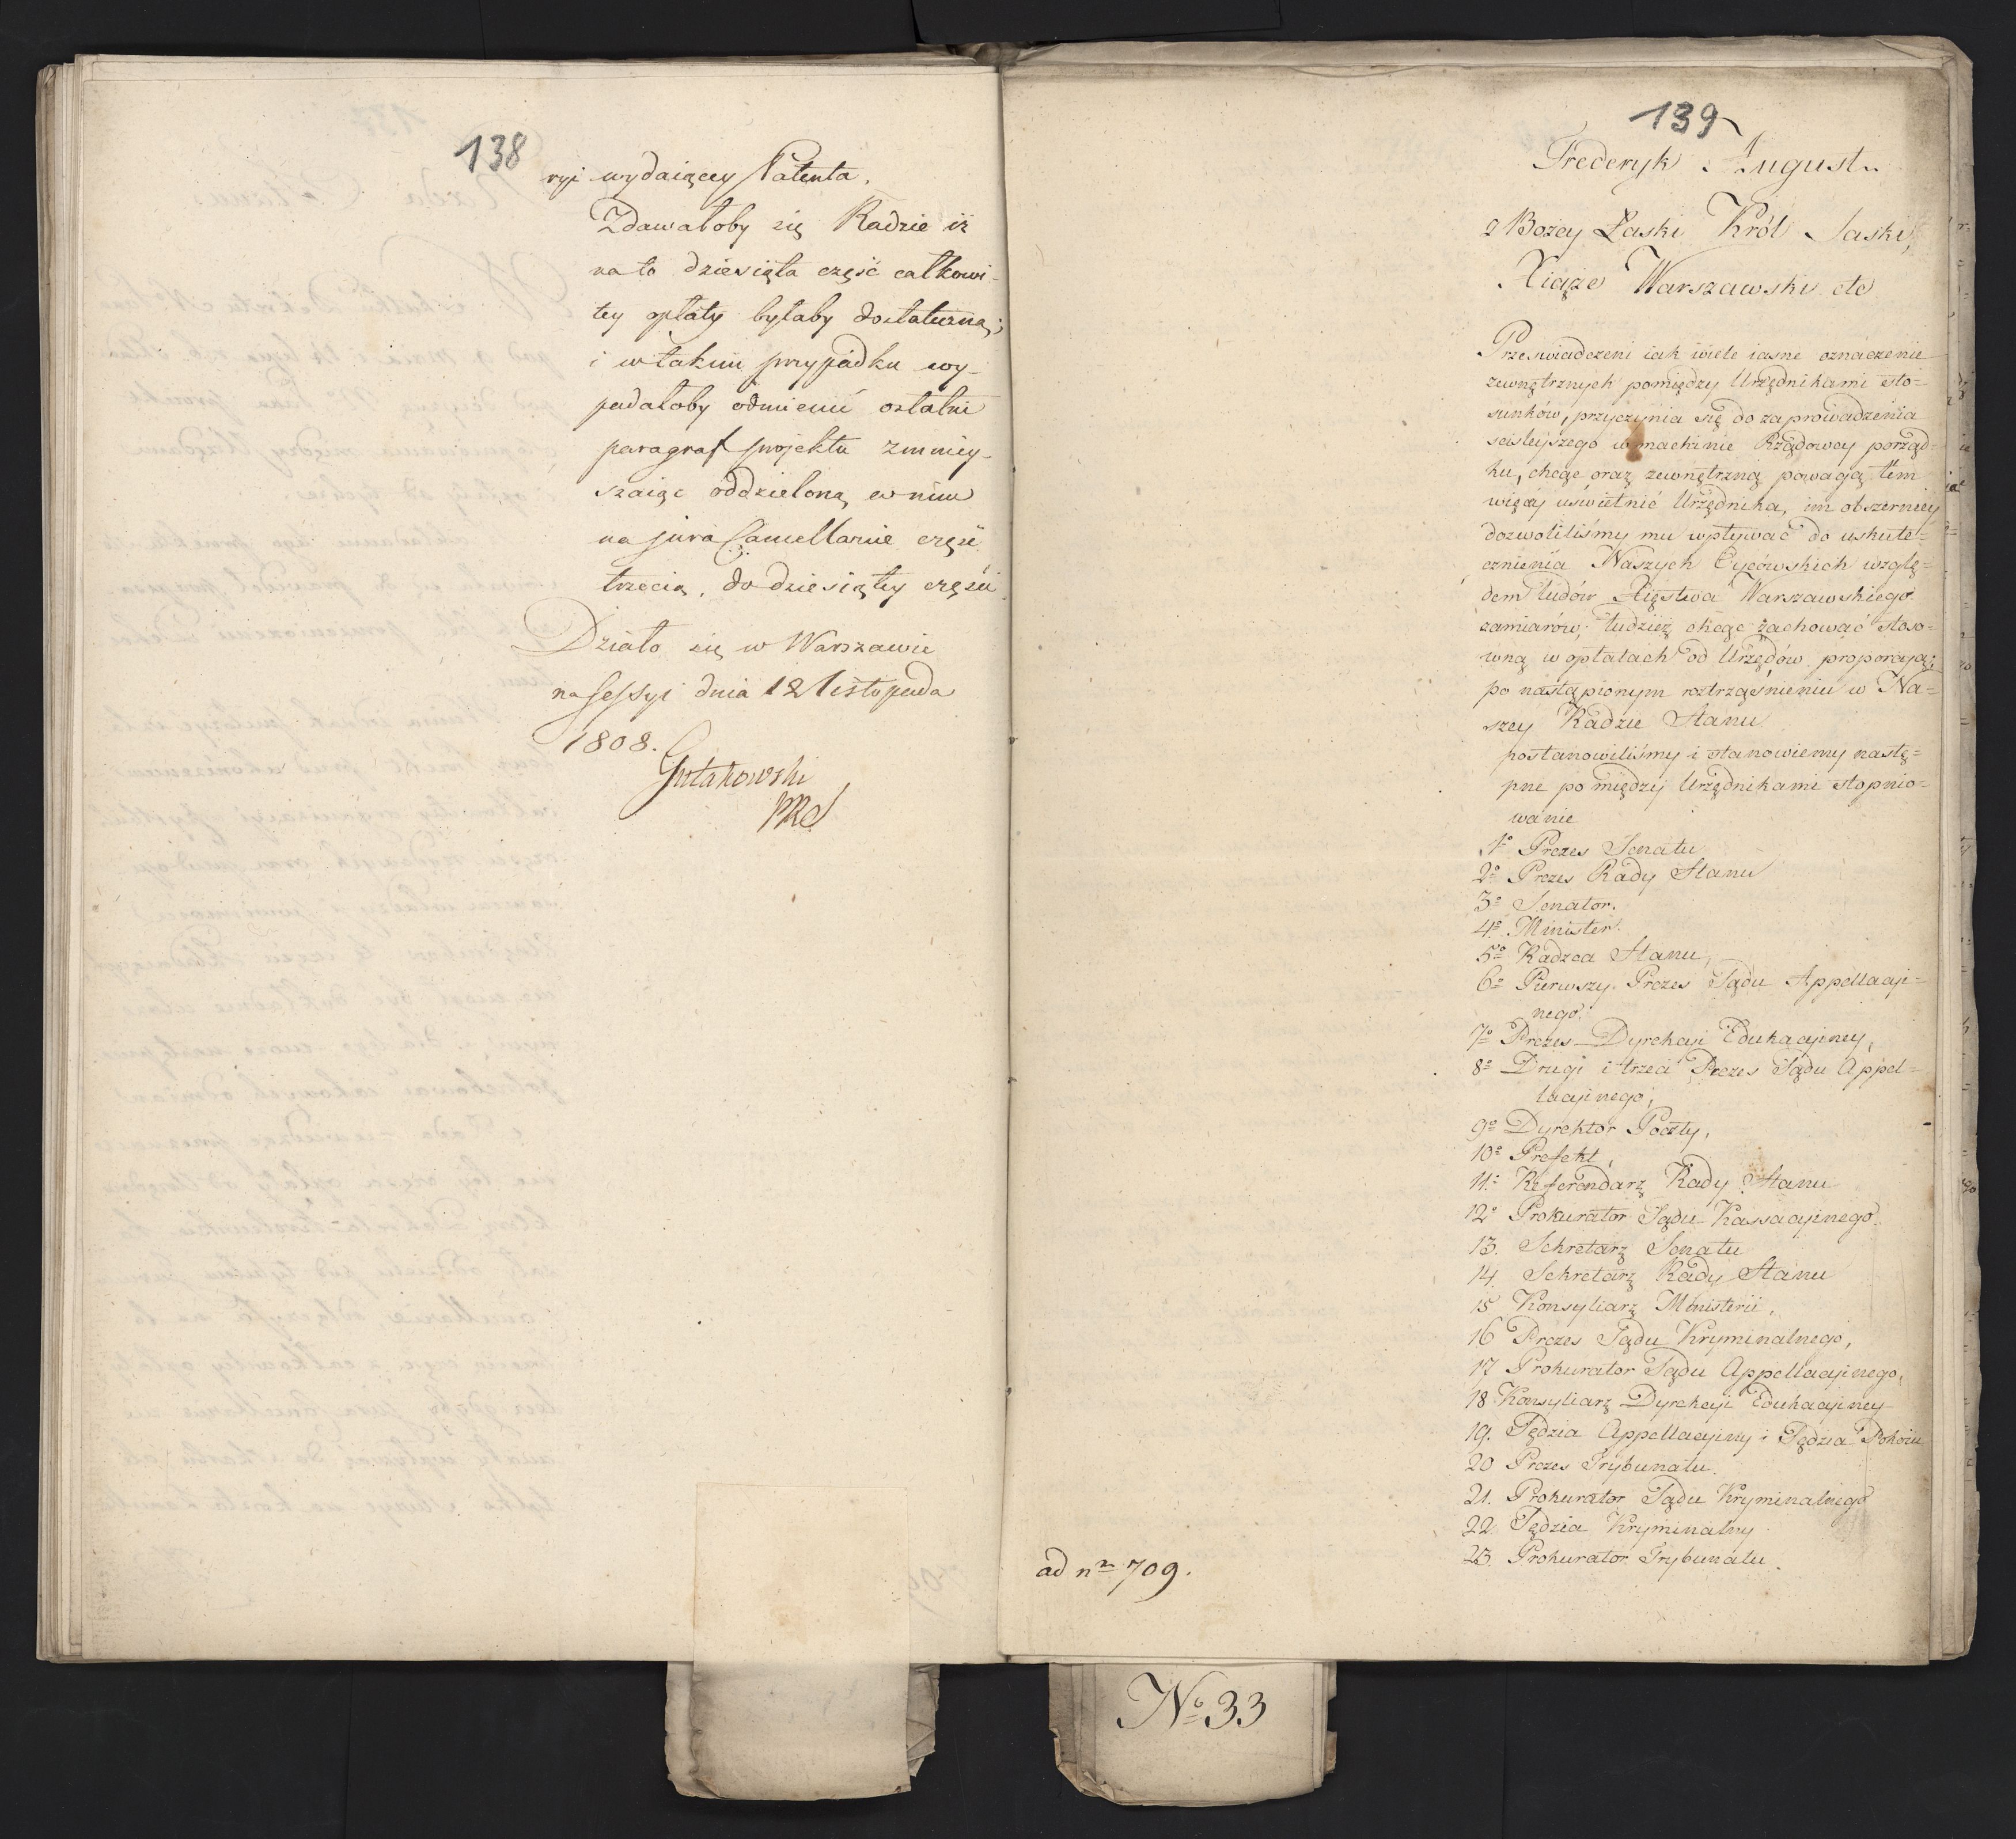 138
ryi wydaiącey Patenta.
Zdawałoby się Radzie iż
na to dziesięta część całkowi-
tey opłaty byłaby dostateczną;
i w takim przypadku wy-
padałoby odmienić ostatni
paragraf projektu zmniey-
szaiąc oddzieloną w nim
na jura Cancellariae część
trzecią, do dziesiątey części
Działo się w Warszawie
na Sessyi dnia 12 listopada
1808.
Gutakowski
PRS
139
Frederyk August
z Bożey Łaski Król Saski,
Xiąże Warszawski etc
Przeświadczeni iak wiele iasne oznaczenie
zewnętrznych pomiędzy Urzędnikami sto=
sunków, przyczynia się do zaprowadzenia
scisleyszego w machinie Rządowey porząd=
ku, chcąc oraz zewnętrzną powagą tem
więcey uswietnić Urzędnika, im obszerniey
dozwoliliśmy mu wpływać do uskute=
cznienia Naszych Oycowskich wzglę=
dem ludów Xięstwa Warszawskiego
zamiarów; tudzież chcąc zachować stoso=
wną w opłatach od Urzędów proporcją;
po nastąpionym roztrząśnieniu w Na=
szey Radzie Stanu
postanowiliśmy i stanowiemy nastę=
pne pomiędzy Urzędnikami stopnio=
wanie
1o Prezes Senatu
2o Prezes Rady Stanu
3o Senator.
4o Minister.
5o Radzca Stanu,
6o Pierwszy Prezes Sądu Appellacyi=
nego.
7o Prezes Dyrekcyi Edukacyiney,
8o Drugi i trzeci Prezes Sądu Appel=
lacyinego,
9o Dyrektor Poczty,
10o Prefekt,
11o Referendarz Rady Stanu
12o Prokurator Sądu Kassacyinego.
13. Sekretarz Senatu
14. Sekretarz Rady Stanu
15 Konsyliarz Ministerii,
16 Prezes Sądu Kryminalnego,
17 Prokurator Sądu Appellacyinego,
18 Konsyliarz Dyrekcyi Edukacyiney
19. Sędzia Appellacyiny i Sędzia Pokoiu
20 Prezes Trybunału.
21. Prokurator Sądu Kryminalnego
22 Sędzia Kryminalny
23. Prokurator Trybunału.
ad nr 709.
No 33